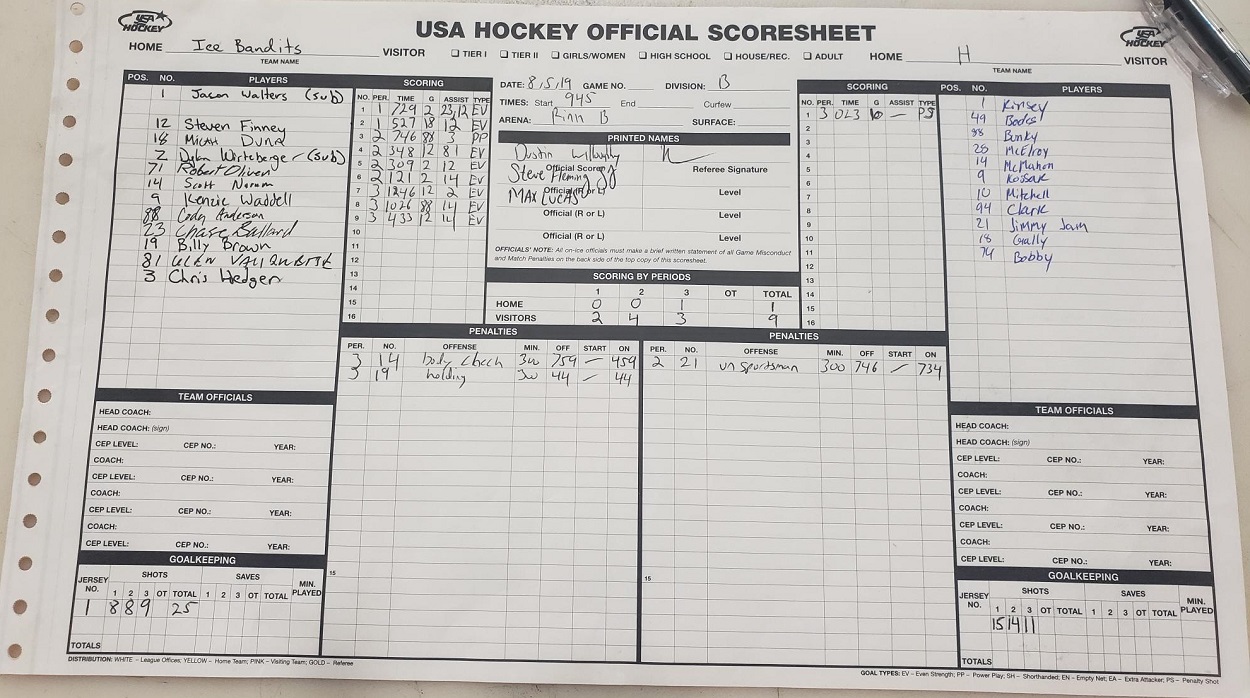 USA HOCKEY OFFICIAL SCORESHEET
USA HOCKEY
USA HOCKEY
HOME Ice Bandits VISITOR
TEAM NAME
☐ TIER I ☐ TIER II ☐ GIRLS/WOMEN ☐ HIGH SCHOOL ☐ HOUSE/REC. ☐ ADULT
HOME H VISITOR
TEAM NAME
POS. NO. PLAYERS
1 Jacon Walters (sub)
12 Steven Finney
18 Micah Dund
2 Dylan Wirteberger (sub)
71 Robert Oliven
14 Scott Norum
9 Kenzie Waddell
88 Cody Anderson
23 Chase Ballard
19 Billy Brown
81 GLEN
3 Chris Hedger
SCORING
NO. PER. TIME G ASSIST TYPE
1 1 729 2 23,12 EV
2 1 527 18 12 EV
3 2 746 88 3 PP
4 2 348 12 81 EV
5 2 309 2 12 EV
6 2 121 2 14 EV
7 3 1246 12 2 EV
8 3 1026 88 14 EV
9 3 433 12 14 EV
10
11
12
13
14
15
16
DATE: 8,5,19 GAME NO. DIVISION: B
TIMES: Start 945 End Curfew
ARENA: Rinn B SURFACE:
PRINTED NAMES
Dustin
Official Scorer Referee Signature
Steve Fleming
Official (R or L) Level
MAX LUCAS
Official (R or L) Level
Official (R or L) Level
OFFICIALS' NOTE: All on-ice officials must make a brief written statement of all Game Misconduct
and Match Penalties on the back side of the top copy of this scoresheet.
SCORING BY PERIODS
1 2 3 OT TOTAL
HOME 0 0 1 1
VISITORS 2 4 3 9
SCORING
NO. PER. TIME G ASSIST TYPE
1 3 023 10 — PS
2
3
4
5
6
7
8
9
10
11
12
13
14
15
16
POS. NO. PLAYERS
1 Kinsey
49 Bodes
88 Bunky
28 McElroy
14 McMahon
9 Kossak
10 Mitchell
94 Clark
21 Jimmy Jam
18 Gally
74 Bobby
PENALTIES
PER. NO. OFFENSE MIN. OFF START ON
3 14 body check 300 759 — 459
3 19 holding 300 44 — 44
15
PENALTIES
PER. NO. OFFENSE MIN. OFF START ON
2 21 unsportsman 300 746 — 734
15
TEAM OFFICIALS
HEAD COACH:
HEAD COACH: (sign)
CEP LEVEL: CEP NO.: YEAR:
COACH:
CEP LEVEL: CEP NO.: YEAR:
COACH:
CEP LEVEL: CEP NO.: YEAR:
COACH:
CEP LEVEL: CEP NO.: YEAR:
GOALKEEPING
JERSEY NO. SHOTS SAVES MIN. PLAYED
1 2 3 OT TOTAL 1 2 3 OT TOTAL
1 8 8 9 25
TOTALS
TEAM OFFICIALS
HEAD COACH:
HEAD COACH: (sign)
CEP LEVEL: CEP NO.: YEAR:
COACH:
CEP LEVEL: CEP NO.: YEAR:
COACH:
CEP LEVEL: CEP NO.: YEAR:
COACH:
CEP LEVEL: CEP NO.: YEAR:
GOALKEEPING
JERSEY NO. SHOTS SAVES MIN. PLAYED
1 2 3 OT TOTAL 1 2 3 OT TOTAL
15 14 11
TOTALS
DISTRIBUTION: WHITE – League Offices; YELLOW – Home Team; PINK – Visiting Team; GOLD – Referee
GOAL TYPES: EV – Even Strength; PP – Power Play; SH – Shorthanded; EN – Empty Net; EA – Extra Attacker; PS – Penalty Shot